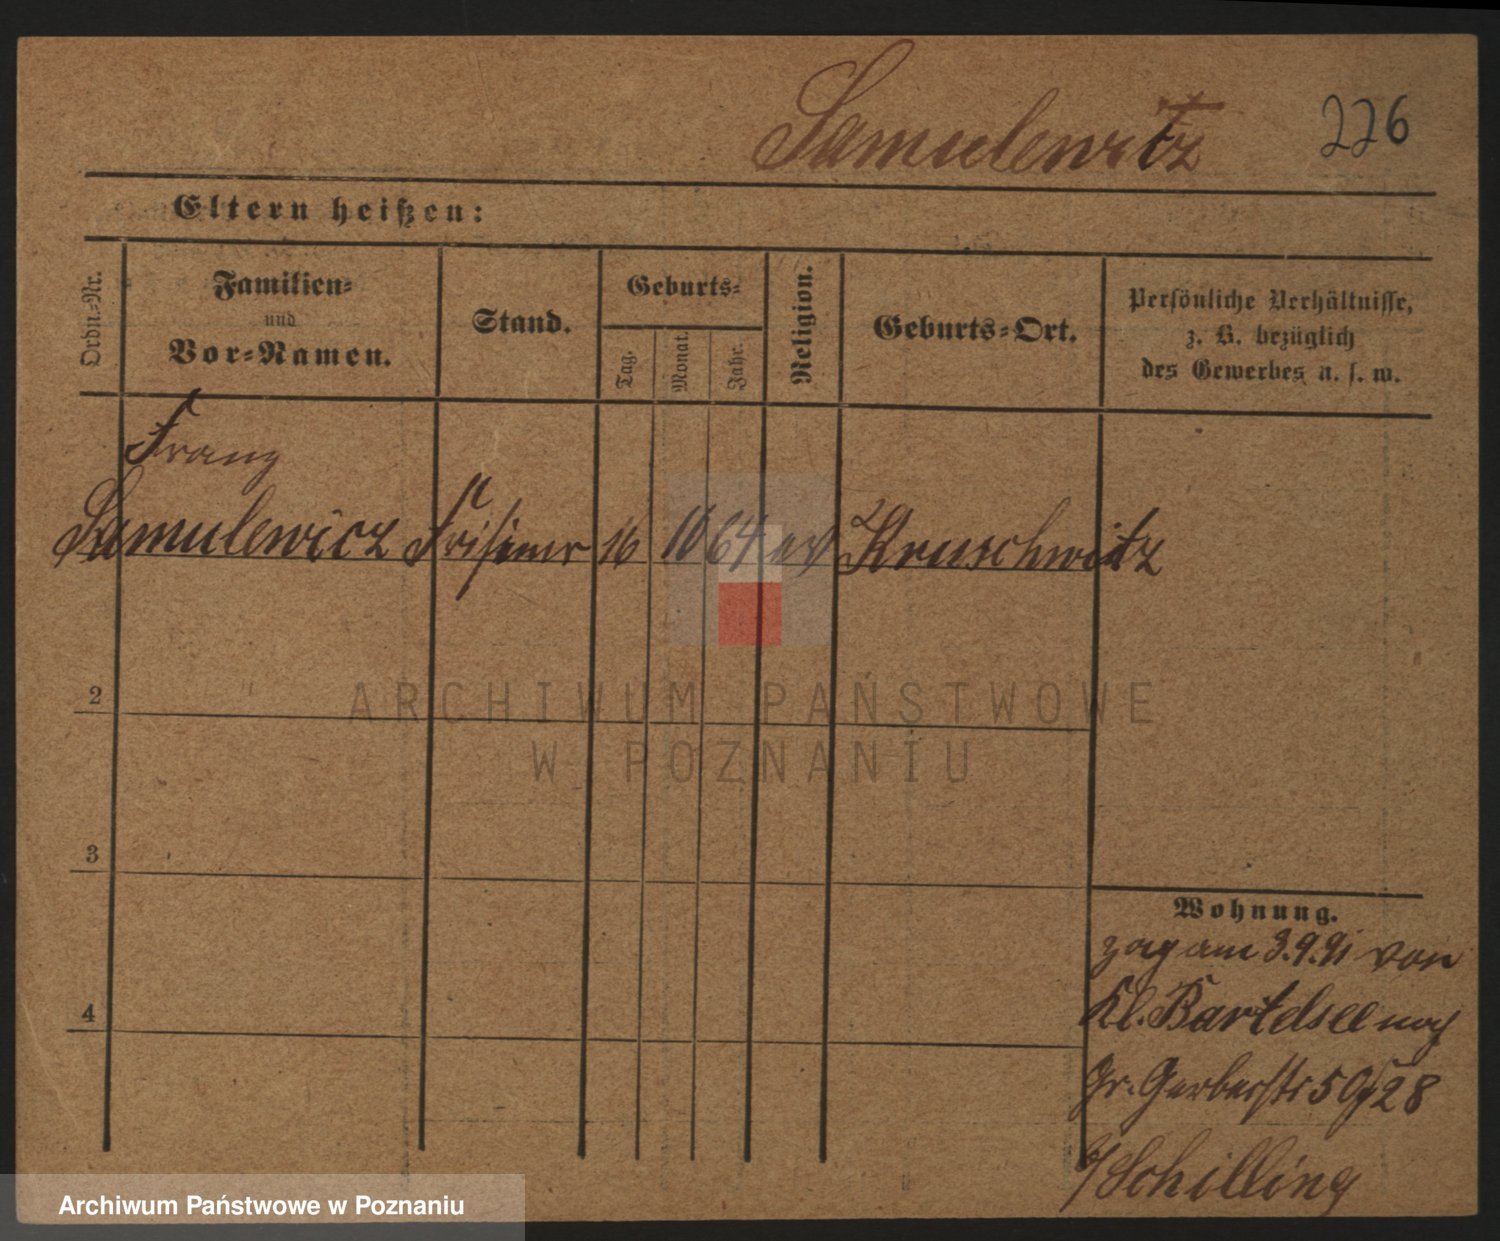 Samulewitz
226
Eltern heißen:
Ordn.-Nr.
Familien-
und
Vor-Namen.
Stand.
Geburts-
Tag.
Monat.
Jahr.
Religion.
Geburts-Ort.
Persönliche Verhältnisse,
z. B. bezüglich
des Gewerbes u. s. w.
Franz
Samulewicz Friseur 16 10 64 Kruschwitz
2
3
4
Wohnung.
zog am 3.9.91 von
Kl. Bartelsee nach
Gr. Gerberstr 50
b/ Schilling
ARCHIWUM PAŃSTWOWE
W POZNANIU
Archiwum Państwowe w Poznaniu